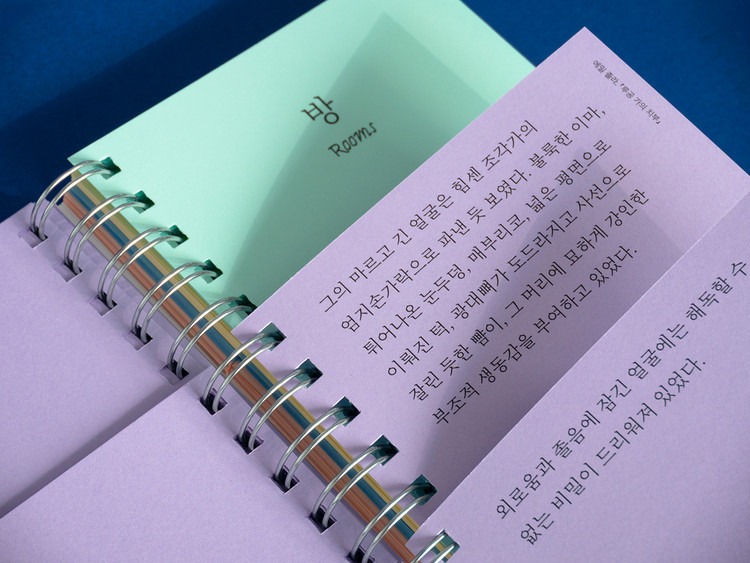 방
Rooms
에밀 졸라, 『루공 가의 치부』
그의 마르고 긴 얼굴은 힘센 조각가의
엄지손가락으로 파낸 듯 보였다. 불룩한 이마,
튀어나온 눈두덩, 매부리코, 넓은 평면으로
이뤄진 턱, 광대뼈가 도드라지고 사선으로
잘린 듯한 뺨이, 그 머리에 묘하게 강인한
부조적 생동감을 부여하고 있었다.
외로움과 졸음에 잠긴 얼굴에는 해독할 수
없는 비밀이 드리워져 있었다.